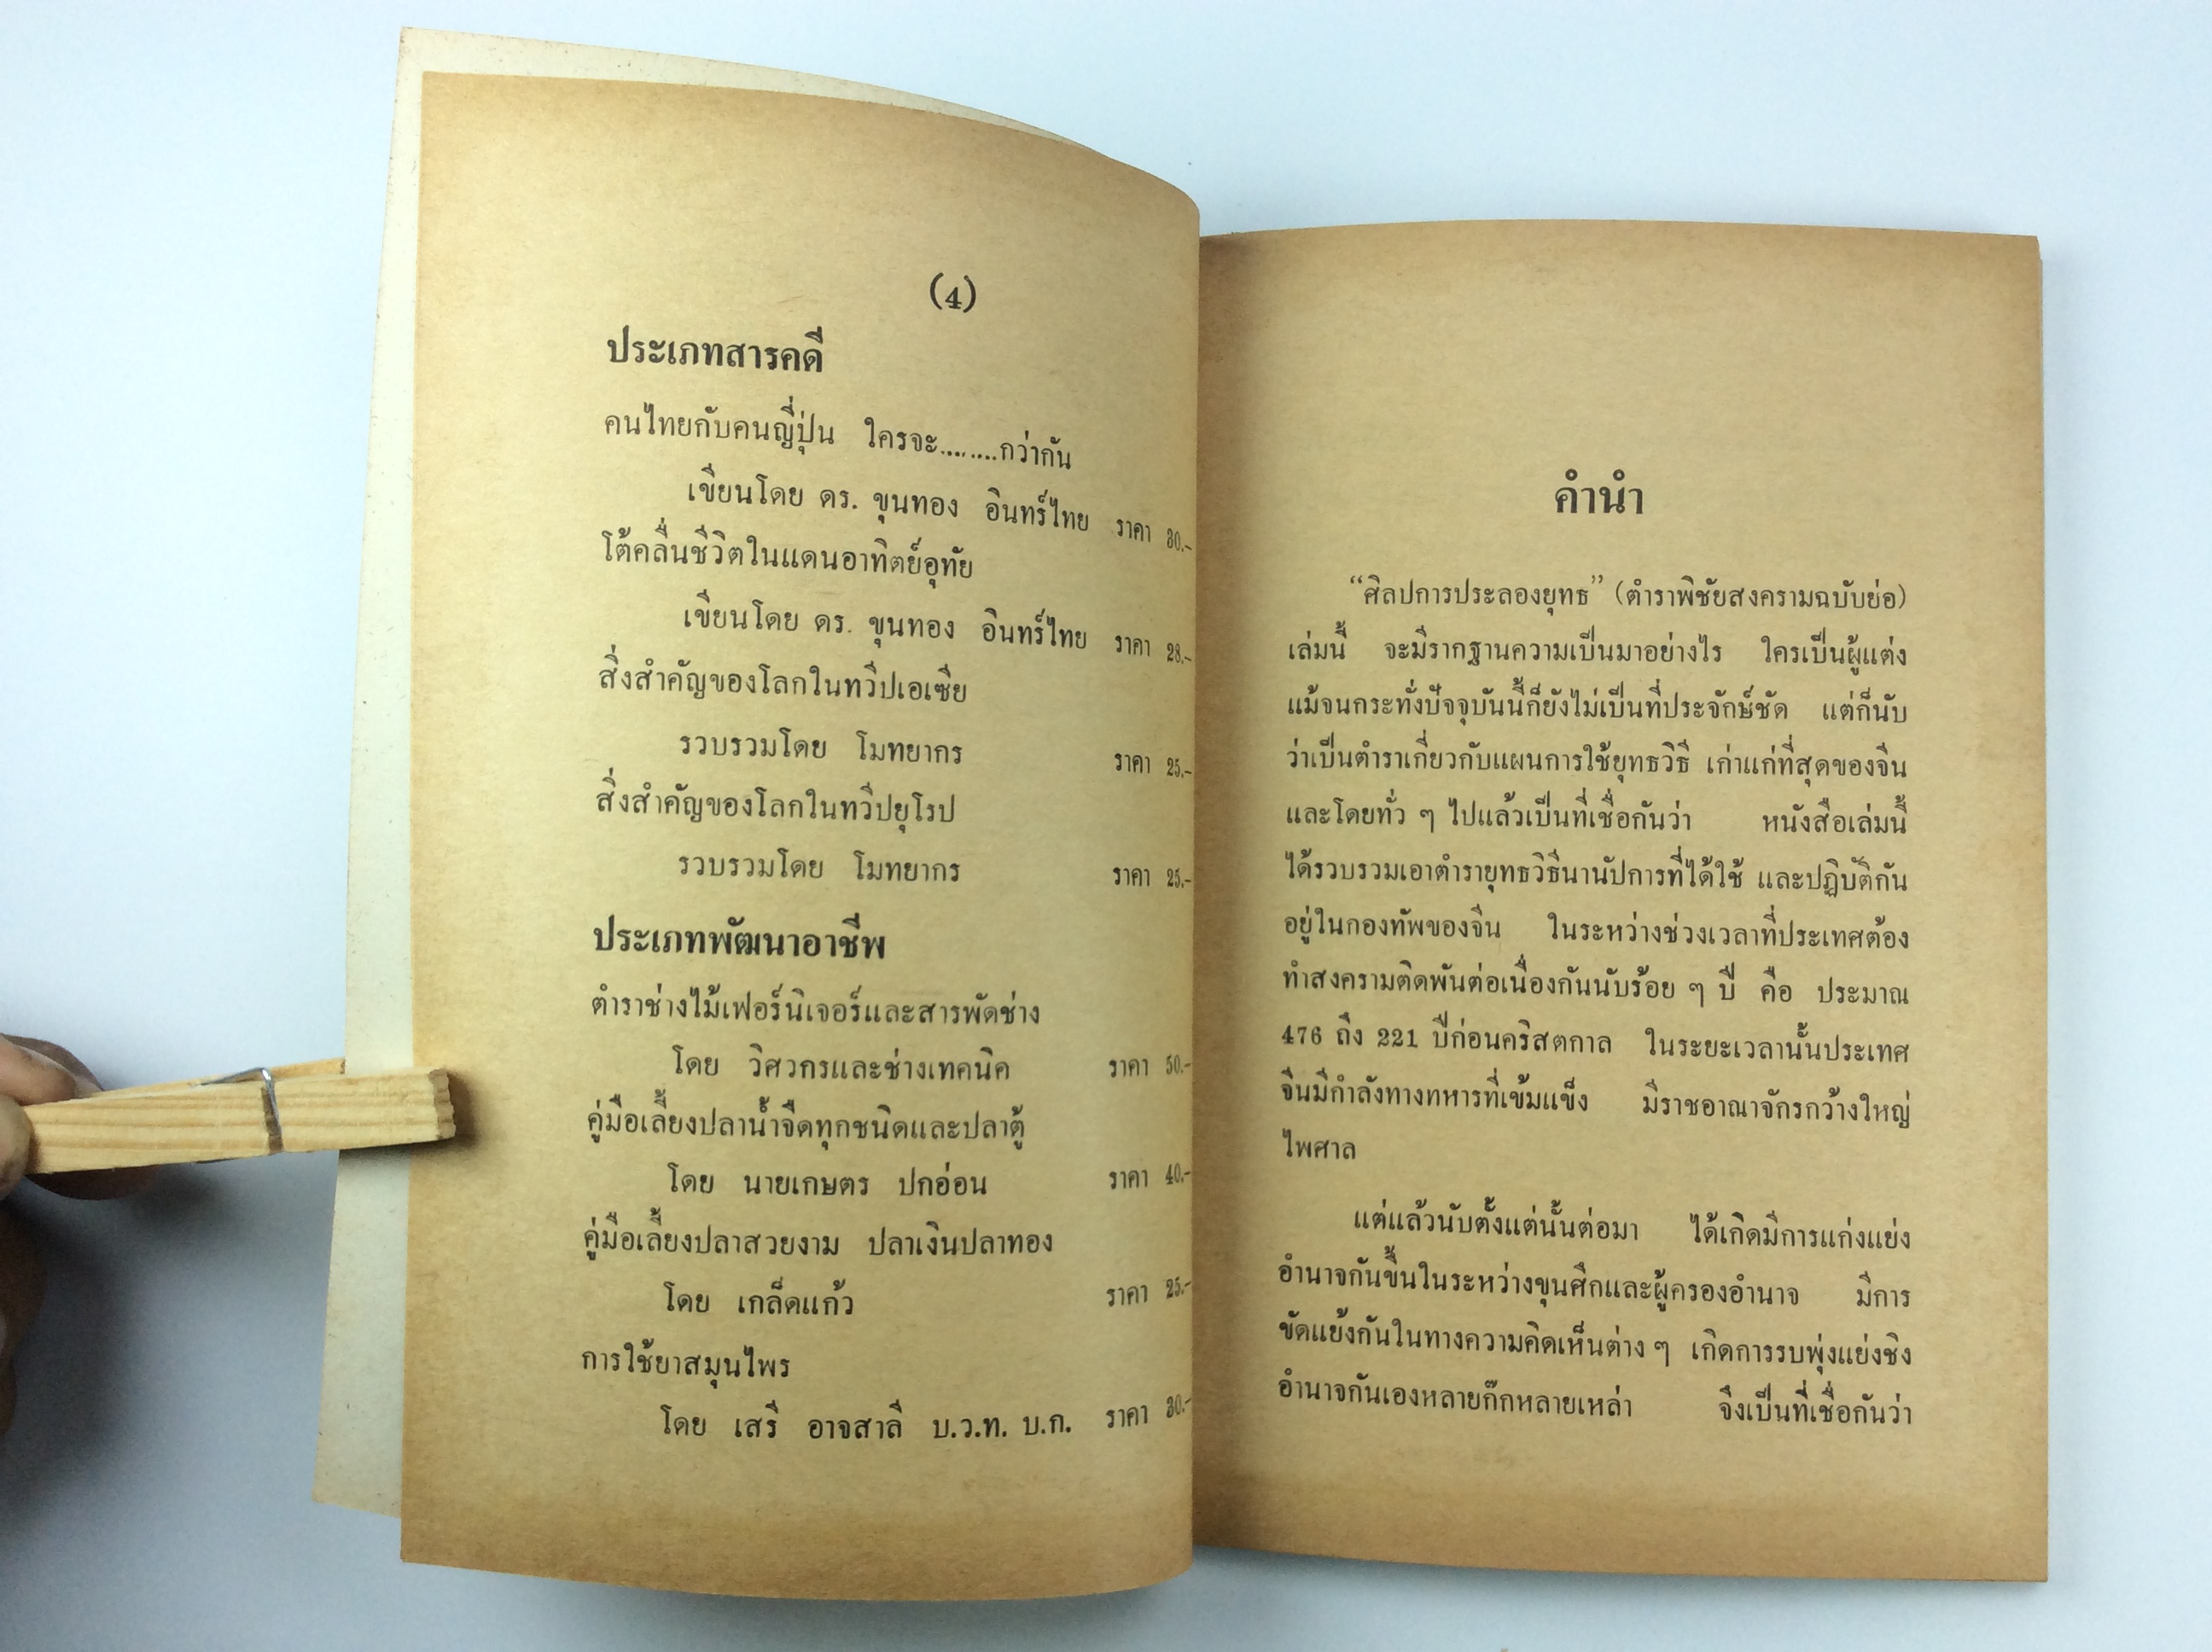 (4)
ประเภทสารคดี
คนไทยกับคนญี่ปุ่น ใครจะ........กว่ากัน
เขียนโดย ดร. ขุนทอง อินทร์ไทย ราคา 30.-
โต้คลื่นชีวิตในแดนอาทิตย์อุทัย
เขียนโดย ดร. ขุนทอง อินทร์ไทย ราคา 28.-
สิ่งสำคัญของโลกในทวีปเอเซีย
รวบรวมโดย โมทยากร ราคา 25.-
สิ่งสำคัญของโลกในทวีปยุโรป
รวบรวมโดย โมทยากร ราคา 25.-
ประเภทพัฒนาอาชีพ
ตำราช่างไม้เฟอร์นิเจอร์และสารพัดช่าง
โดย วิศวกรและช่างเทคนิค ราคา 50.-
คู่มือเลี้ยงปลาน้ำจืดทุกชนิดและปลาตู้
โดย นายเกษตร ปกอ่อน ราคา 40.-
คู่มือเลี้ยงปลาสวยงาม ปลาเงินปลาทอง
โดย เกล็ดแก้ว ราคา 25.-
การใช้ยาสมุนไพร
โดย เสรี อาจสาลี บ.ว.ท. บ.ก. ราคา 30.-
คำนำ
“ศิลปการประลองยุทธ” (ตำราพิชัยสงครามฉบับย่อ)
เล่มนี้ จะมีรากฐานความเป็นมาอย่างไร ใครเป็นผู้แต่ง
แม้จนกระทั่งปัจจุบันนี้ก็ยังไม่เป็นที่ประจักษ์ชัด แต่ก็นับ
ว่าเป็นตำราเกี่ยวกับแผนการใช้ยุทธวิธี เก่าแก่ที่สุดของจีน
และโดยทั่ว ๆ ไปแล้วเป็นที่เชื่อกันว่า หนังสือเล่มนี้
ได้รวบรวมเอาตำรายุทธวิธีนานัปการที่ได้ใช้ และปฏิบัติกัน
อยู่ในกองทัพของจีน ในระหว่างช่วงเวลาที่ประเทศต้อง
ทำสงครามติดพันต่อเนื่องกันนับร้อย ๆ ปี คือ ประมาณ
476 ถึง 221 ปีก่อนคริสตกาล ในระยะเวลานั้นประเทศ
จีนมีกำลังทางทหารที่เข้มแข็ง มีราชอาณาจักรกว้างใหญ่
ไพศาล
แต่แล้วนับตั้งแต่นั้นต่อมา ได้เกิดมีการแก่งแย่ง
อำนาจกันขึ้นในระหว่างขุนศึกและผู้ครองอำนาจ มีการ
ขัดแย้งกันในทางความคิดเห็นต่าง ๆ เกิดการรบพุ่งแย่งชิง
อำนาจกันเองหลายก๊กหลายเหล่า จึงเป็นที่เชื่อกันว่า